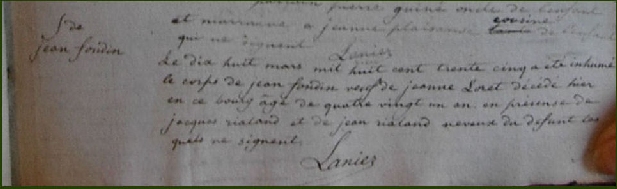 parrain pierre quinée oncle de l'enfant
et marraine a jeanne plaisance cousine de l'enfant
qui ne signent
Lanier
Sre de
jean fondin
Le dix huit mars mil huit cent trente cinq a été inhumé
le corps de jean fondin veuf de jeanne Loret décédé hier
en ce bourg âgé de quatre vingt un an. en présense de
jacques rialand et de jean rialand neveux du défunt les
quels ne signent.
Lanier